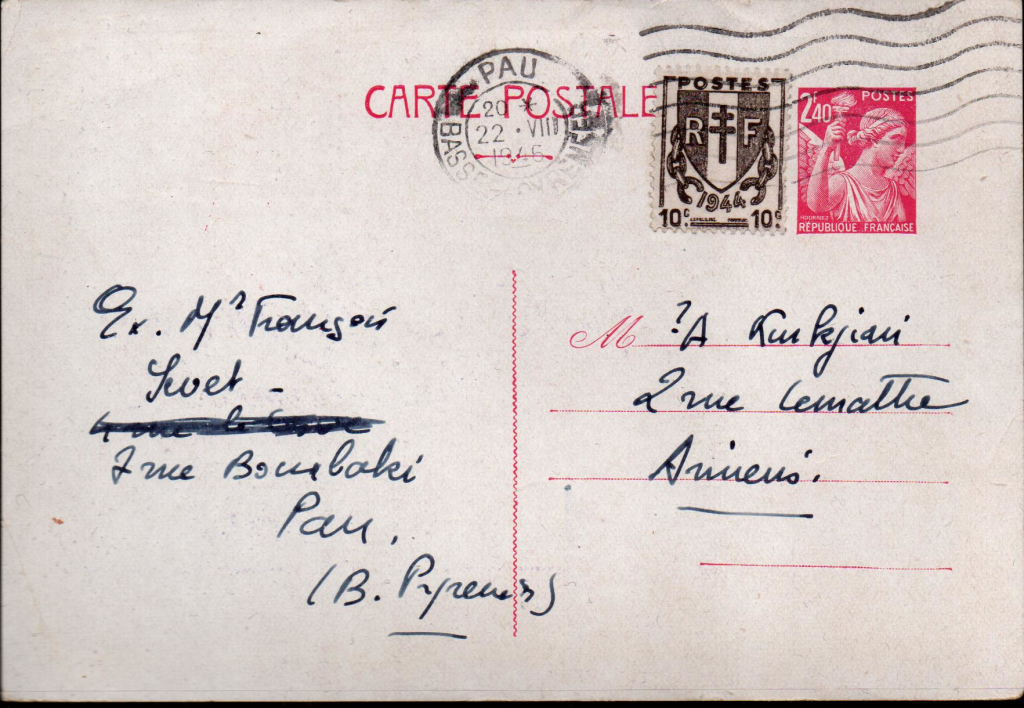 CARTE POSTALE
PAU
20 *
22 · VIII
1946
BASSES PYRENEES
POSTES
R F
1944
10c. 10c.
2f40 POSTES
RÉPUBLIQUE FRANÇAISE
Ex. Mr François
7 rue Bourbaki
Pau.
(B. Pyrenees)
M r A Kurkjian
2 rue Lemattre
Amiens.